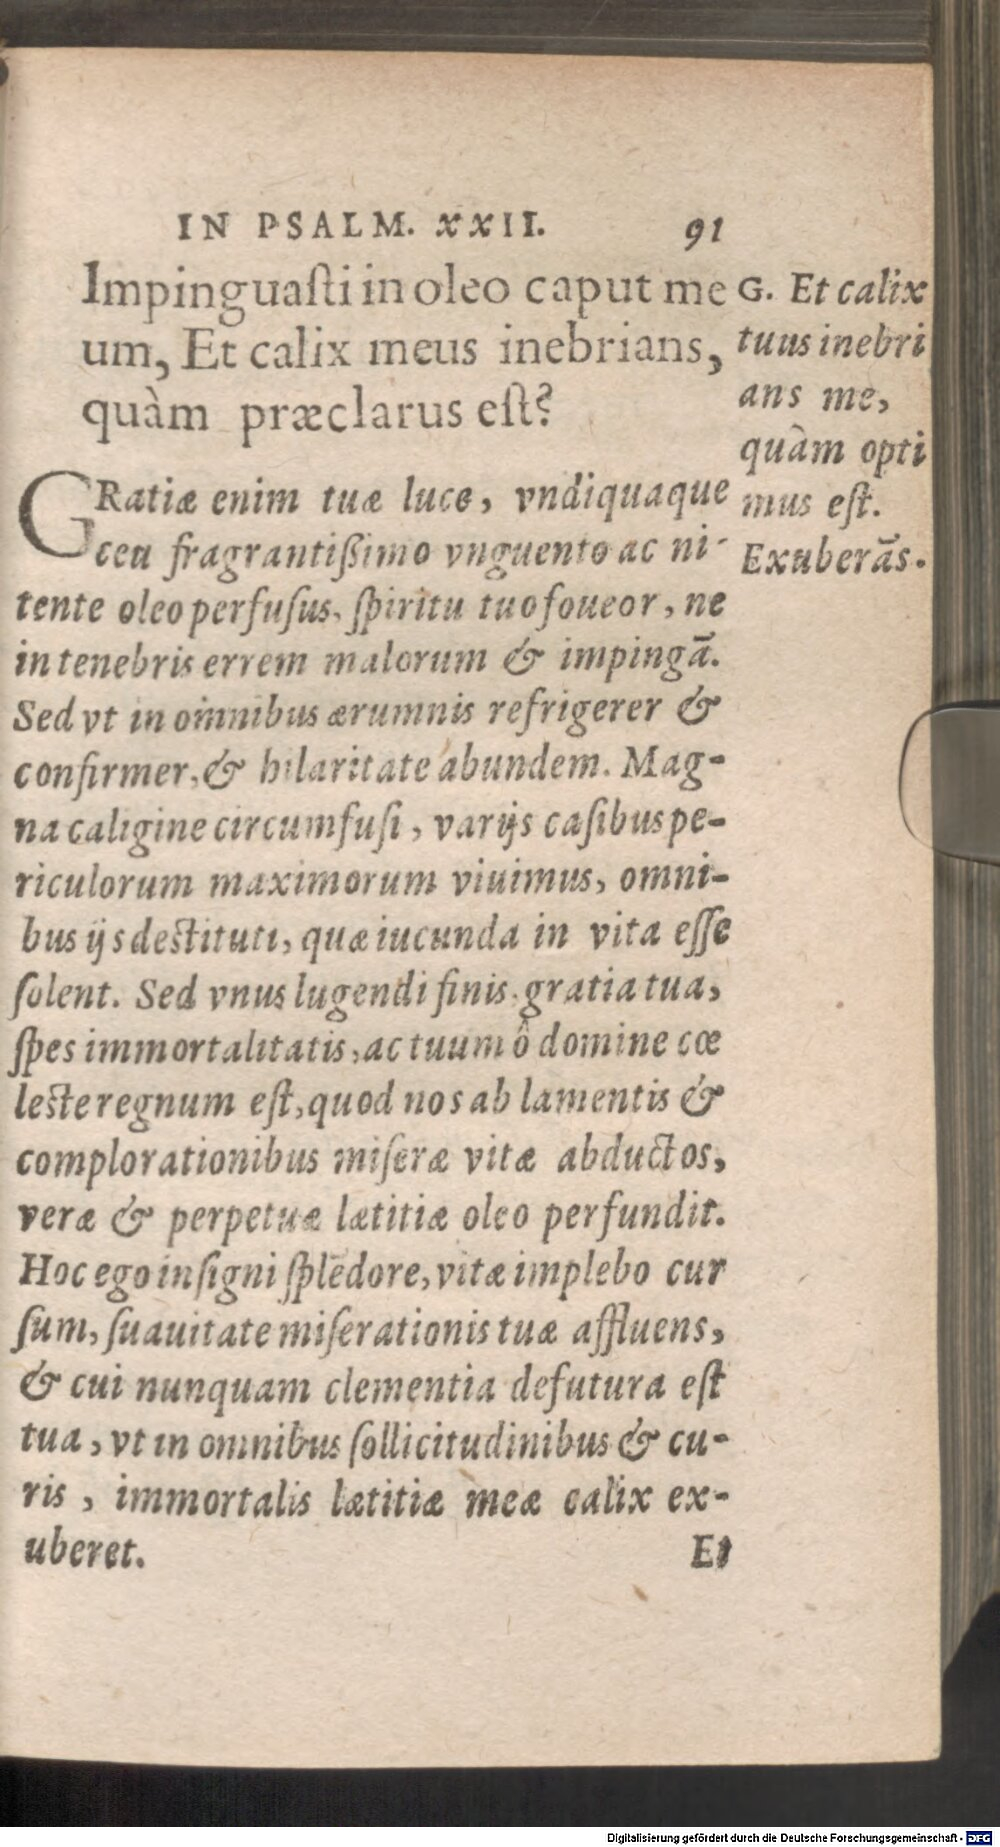 IN PSALM. XXII. 91
Impinguaſti in oleo caput me
um, Et calix meus inebrians,
quàm præclarus eſt?
G. Et calix
tuus inebri
ans me,
quàm opti
mus eſt.
Exuberãs.
GRatiæ enim tuæ luce, vndiquaque
ceu fragrantißimo vnguento ac ni-
tente oleo perfuſus, ſpiritu tuo foueor, ne
in tenebris errem malorum & impingã.
Sed vt in omnibus ærumnis refrigerer &
confirmer, & hilaritate abundem. Mag-
na caligine circumfuſi, varijs caſibus pe-
riculorum maximorum viuimus, omni-
bus ijs deſtituti, quæ iucunda in vita eſſe
ſolent. Sed vnus lugendi finis, gratia tua,
ſpes immortalitatis, ac tuum ô domine cœ
leſte regnum eſt, quod nos ab lamentis &
complorationibus miſeræ vitæ abductos,
veræ & perpetuæ lætitiæ oleo perfundit.
Hoc ego inſigni ſplēdore, vitæ implebo cur
ſum, ſuauitate miſerationis tuæ affluens,
& cui nunquam clementia defutura eſt
tua, vt in omnibus ſollicitudinibus & cu-
ris, immortalis lætitiæ meæ calix ex-
uberet.
Et
Digitalisierung gefördert durch die Deutsche Forschungsgemeinschaft - DFG